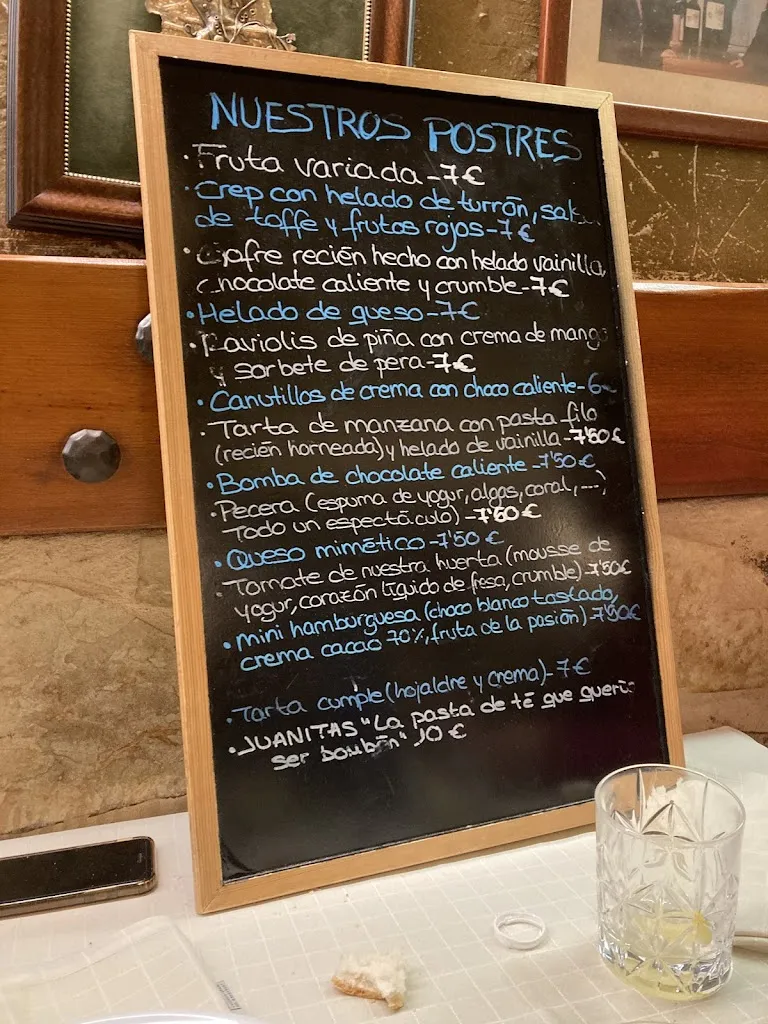 NUESTROS POSTRES
·Fruta variada-7€
·Crep con helado de turrón,
de toffe y frutos rojos-7€
·Gofre recién hecho con helado vainilla,
chocolate caliente y crumble-7€
·Helado de queso-7€
·Raviolis de piña con crema de mango
y sorbete de pera-7€
·Canutillos de crema con choco caliente-6€
·Tarta de manzana con pasta filo
(recién horneada) y helado de vainilla-7'50€
·Bomba de chocolate caliente-7'50€
·Pecera (espuma de yogur, algas, coral, ...,
Todo un espectáculo)-7'50€
·Queso mimético-7'50€
·Tomate de nuestra huerta (mousse de
yogur, corazón líquido de fresa, crumble)-7'50€
·Mini hamburguesa (choco blanco tostado,
crema cacao 70%, fruta de la pasión)-7'50€
·Tarta cumple (hojaldre y crema)-7€
·JUANITAS "La pasta de té que quería
ser bombón" 10€